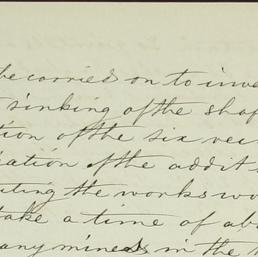 be carried on to inve
sinking of the shaf
tion of the six vei
iation of the addit
uting the works wo
take a time of abo
any miners in the